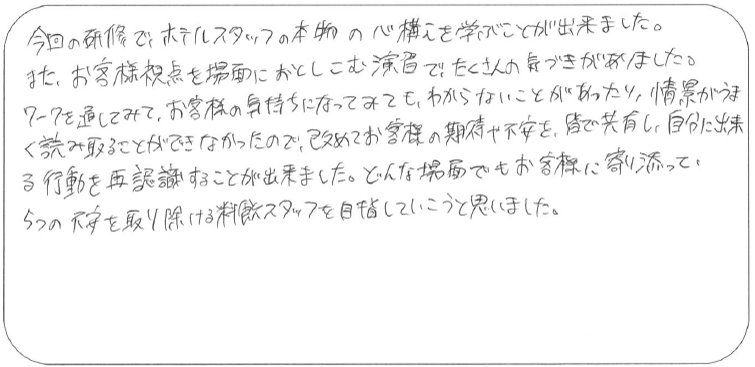 今回の研修で、ホテルスタッフの本物の心構えを学ぶことが出来ました。
また、お客様視点を場面におとしこむ演習で、たくさんの気づきがありました。
ワークを通してみて、お客様の気持ちになってみても、わからないことがあったり、情景がうま
く読み取ることができなかったので、改めてお客様の期待や不安を、皆で共有し、自分に出来
る行動を再認識することが出来ました。どんな場面でもお客様に寄り添って、
5つの不安を取り除ける料飲スタッフを目指していこうと思いました。